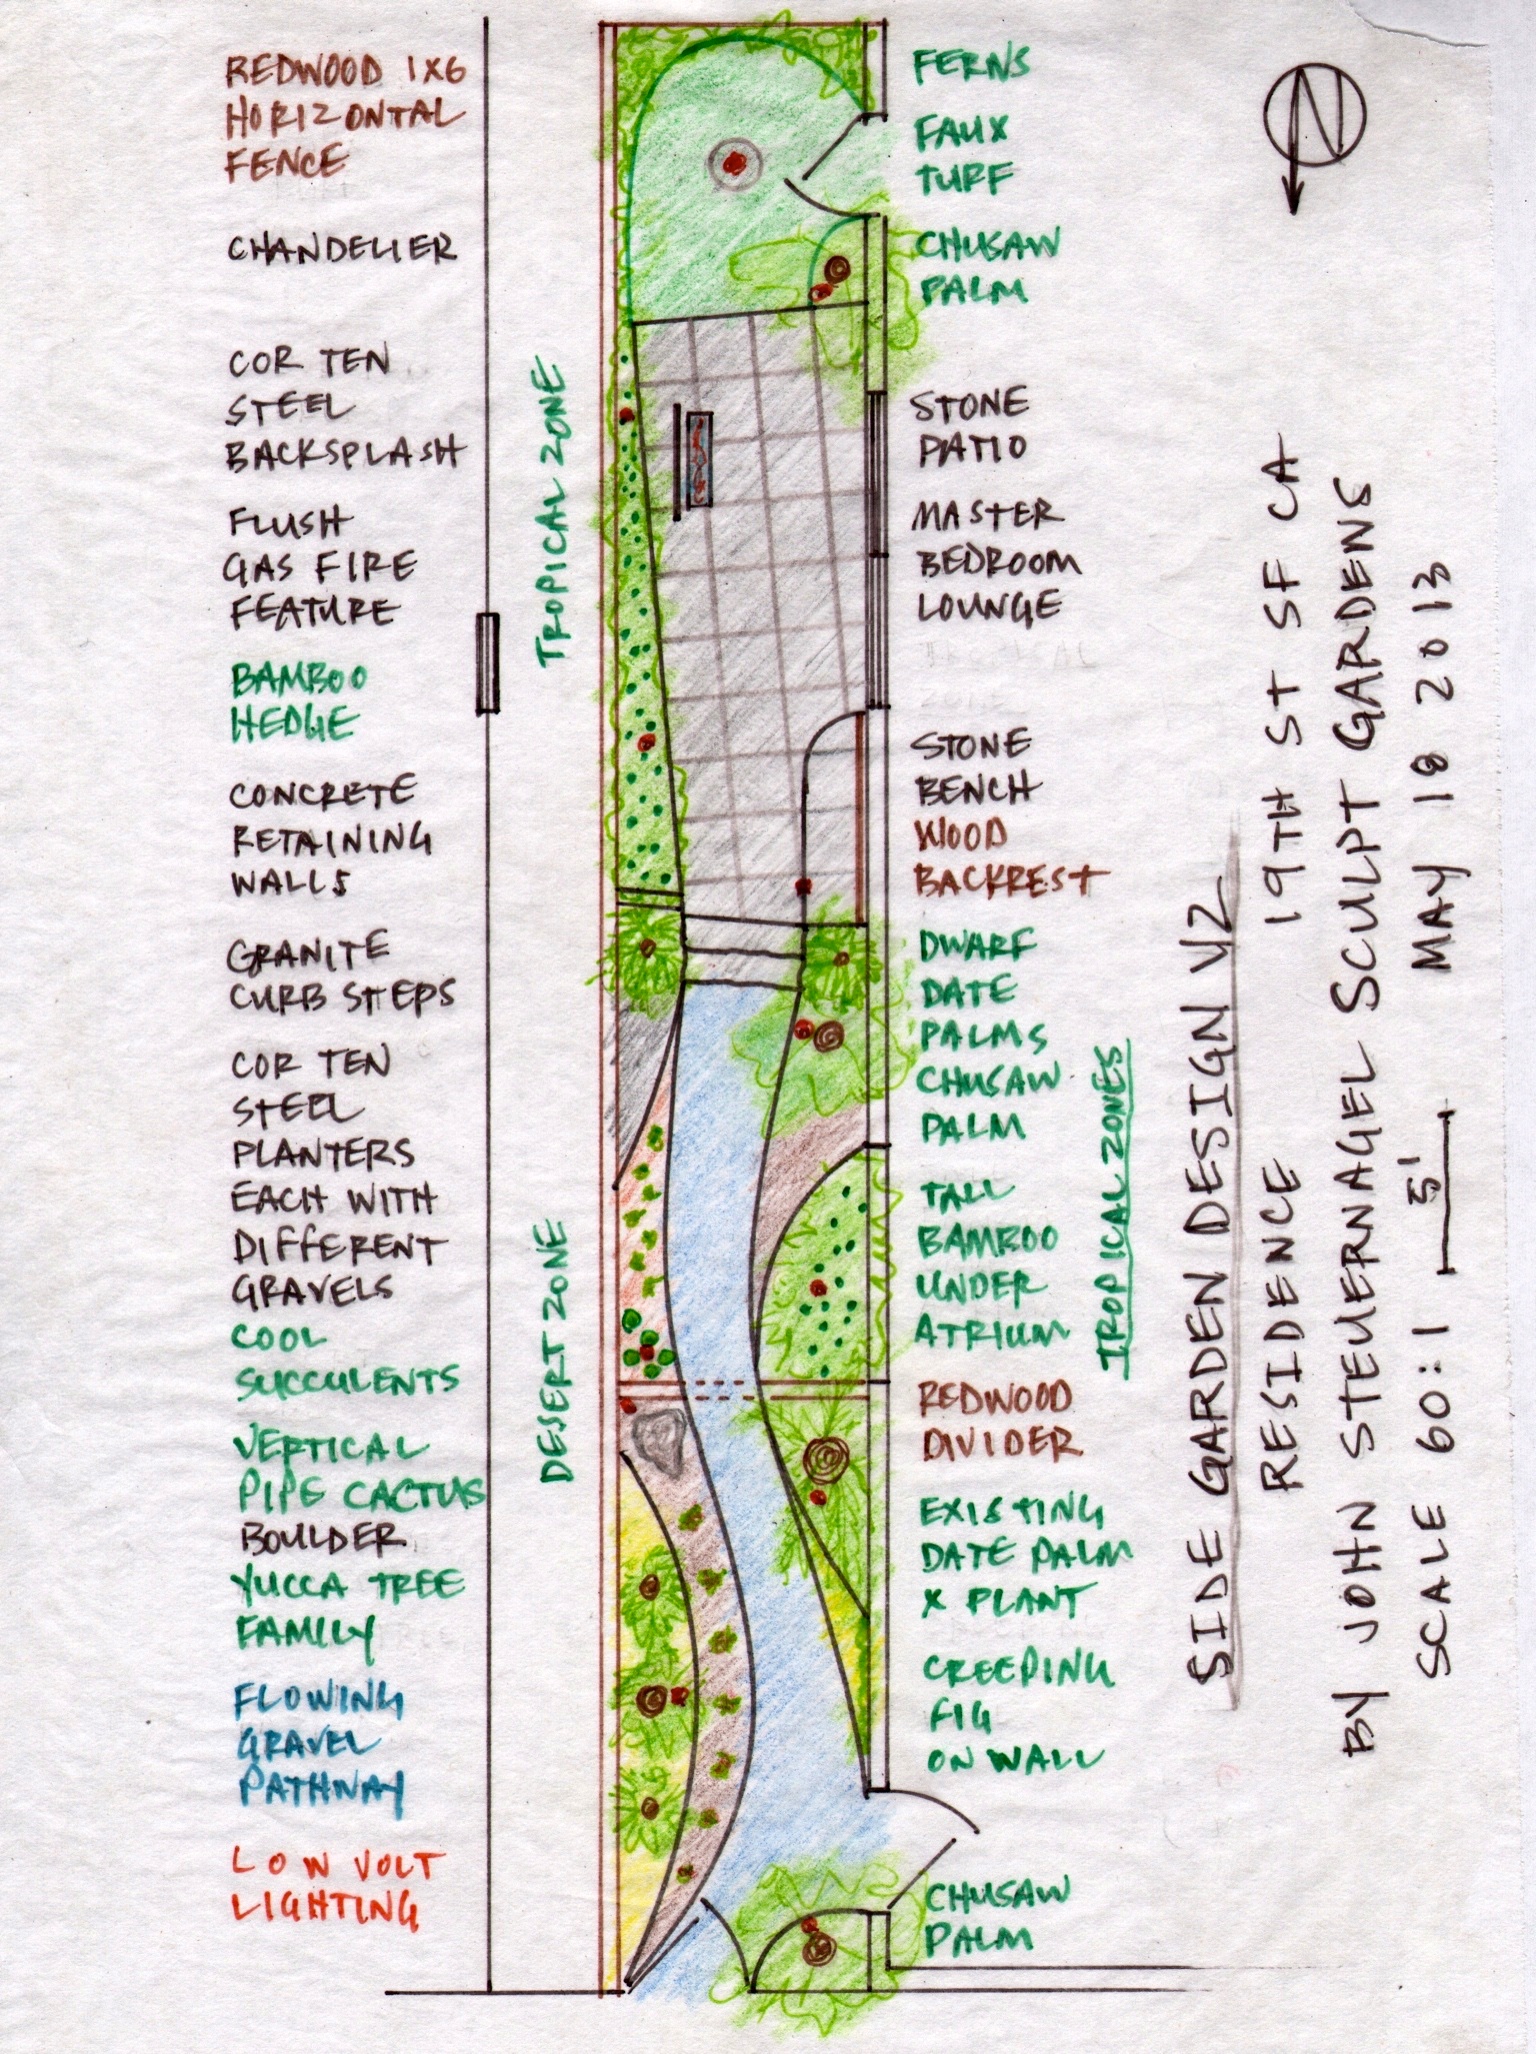 REDWOOD 1X6
HORIZONTAL
FENCE
CHANDELIER
COR TEN
STEEL
BACKSPLASH
FLUSH
GAS FIRE
FEATURE
BAMBOO
HEDGE
CONCRETE
RETAINING
WALLS
GRANITE
CURB STEPS
COR TEN
STEEL
PLANTERS
EACH WITH
DIFFERENT
GRAVELS
COOL
SUCCULENTS
VERTICAL
PIPE CACTUS
BOULDER
YUCCA TREE
FAMILY
FLOWING
GRAVEL
PATHWAY
LOW VOLT
LIGHTING
TROPICAL ZONE
DESERT ZONE
FERNS
FAUX
TURF
CHUSAW
PALM
STONE
PATIO
MASTER
BEDROOM
LOUNGE
STONE
BENCH
WOOD
BACKREST
DWARF
DATE
PALMS
CHUSAW
PALM
TALL
BAMBOO
UNDER
ATRIUM
REDWOOD
DIVIDER
EXISTING
DATE PALM
X PLANT
CREEPING
FIG
ON WALL
CHUSAW
PALM
TROPICAL ZONES
N
SIDE GARDEN DESIGN V2
RESIDENCE 19TH ST SF CA
BY JOHN STEUERNAGEL SCULPT GARDENS
SCALE 60:1 5' MAY 18 2013